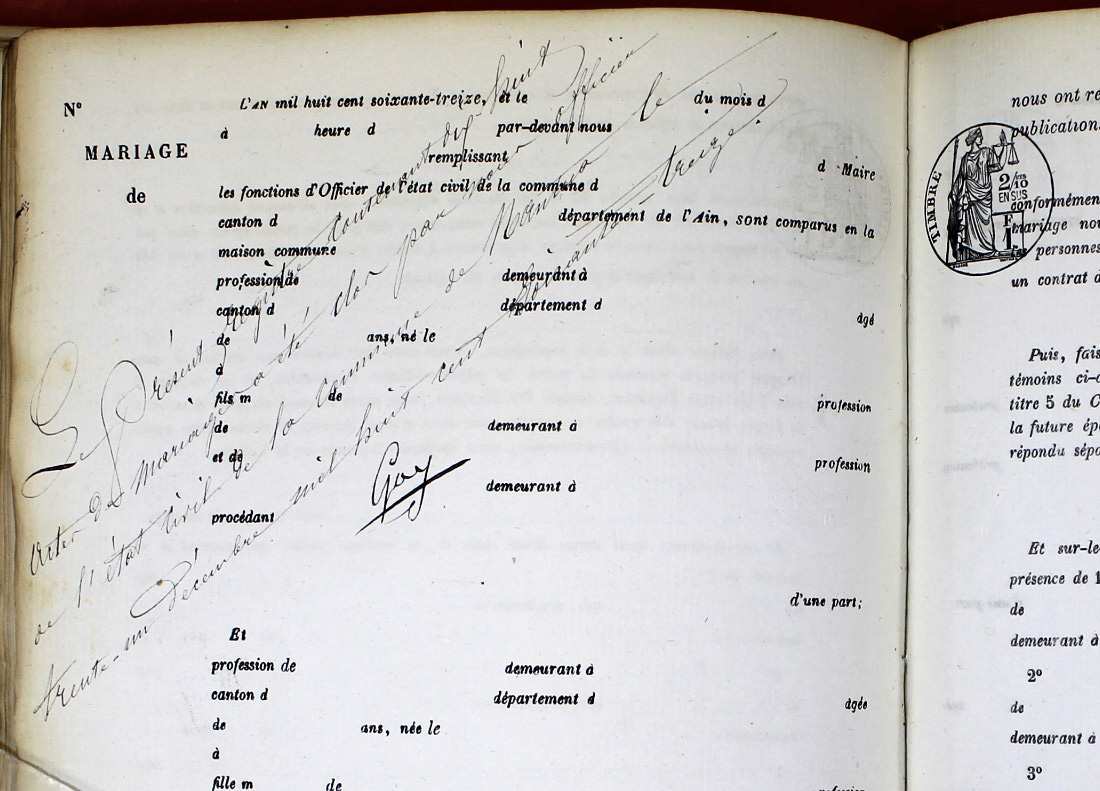 N°
MARIAGE
de
L'AN mil huit cent soixante-treize, et le du mois d
à heure d par-devant nous
remplissant
d Maire
les fonctions d'Officier de l'état civil de la commune d
canton d département de l'Ain, sont comparus en la
maison commune
profession de demeurant à
canton d département d
âgé
de ans, né le
à
fils m de
profession
de demeurant à
et de
profession
demeurant à
procédant
d'une part;
Et
profession de demeurant à
canton d département d
âgée
de ans, née le
à
fille m de
Le Présent registre contenant dix-huit
actes de mariage a été clos par nous officier
de l'état civil de la commune de le
trente-un décembre mil huit cent soixante-treize.
Goy
nous ont re
publications
TIMBRE
2/10
EN SUS
conformémen
mariage nou
personnes
un contrat d
Puis, fais
témoins ci-d
titre 5 du C
la future épo
répondu sépa
Et sur-le-
présence de 1
de
demeurant à
2°
de
demeurant à
3°